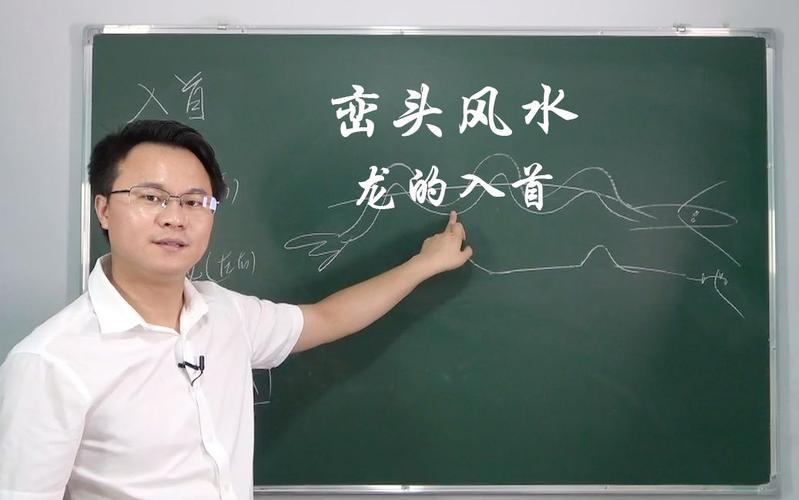 入首
峦头风水
龙的入首